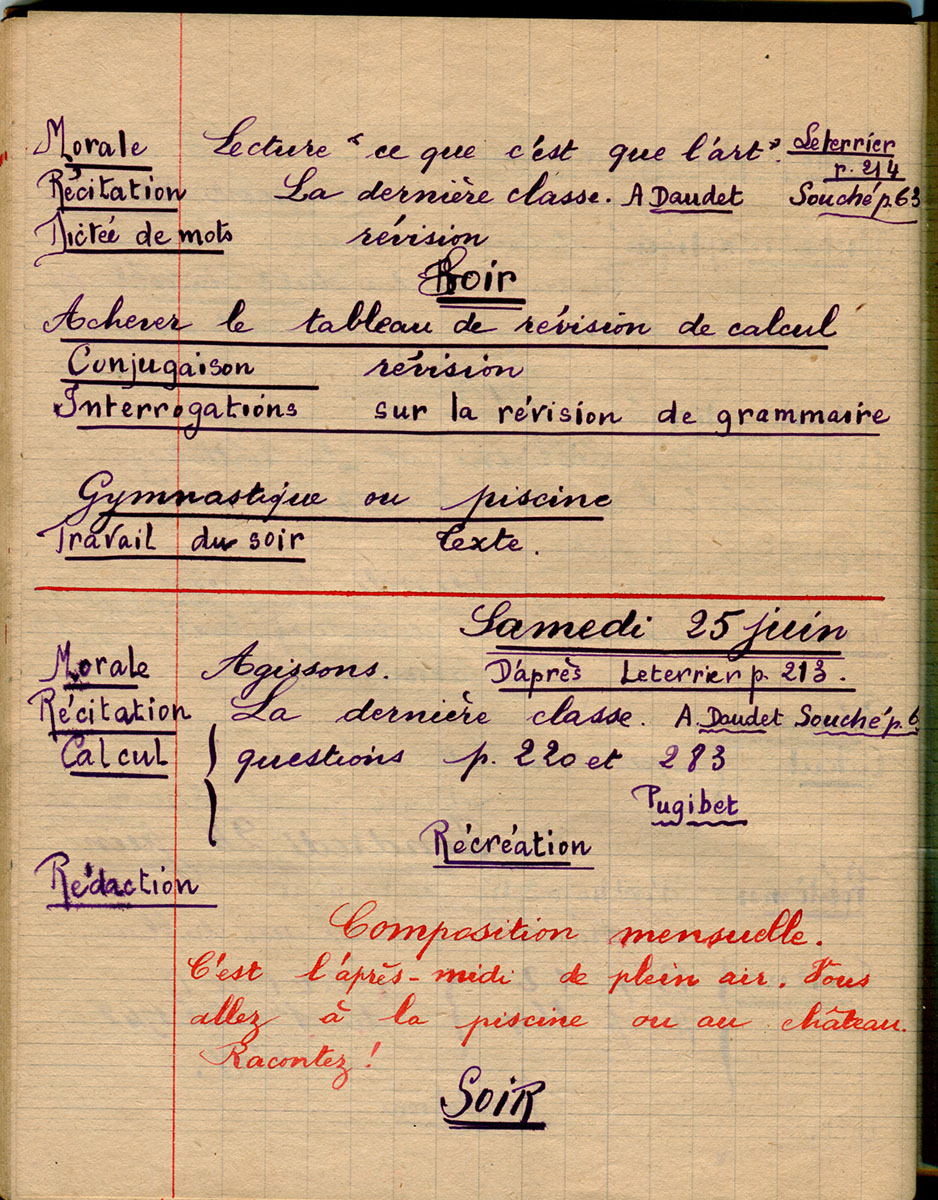 Morale Lecture "ce que c'est que l'art". Leterrier
p. 214
Récitation La dernière classe. A Daudet Souché p. 63
Dictée de mots révision
Soir
Achever le tableau de révision de calcul
Conjugaison révision
Interrogations sur la révision de grammaire
Gymnastique ou piscine
Travail du soir Texte.
Samedi 25 juin
Morale Agissons. D'après Leterrier p. 213.
Récitation La dernière classe. A. Daudet Souché p. 6
Calcul questions p. 220 et 283
Pugibet
Récréation
Rédaction
Composition mensuelle.
C'est l'après-midi de plein air. Vous
allez à la piscine ou au château.
Racontez !
SOIR